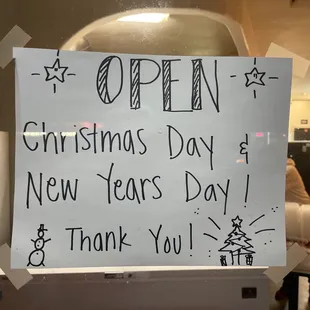 OPEN
Christmas Day &
New Years Day!
Thank You!